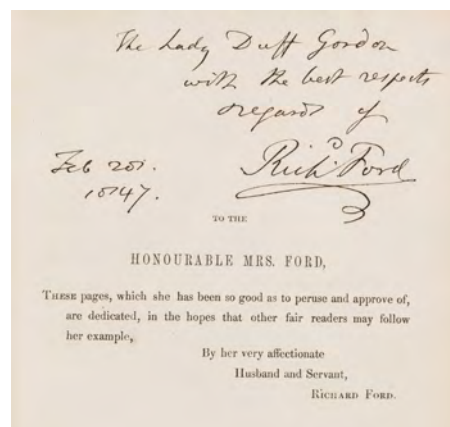 The Lady Duff Gordon
with the best respects
& regards of
Richd Ford
Feb 20.
1847.
TO THE
HONOURABLE MRS. FORD,
THESE pages, which she has been so good as to peruse and approve of,
are dedicated, in the hopes that other fair readers may follow
her example,
By her very affectionate
Husband and Servant,
RICHARD FORD.